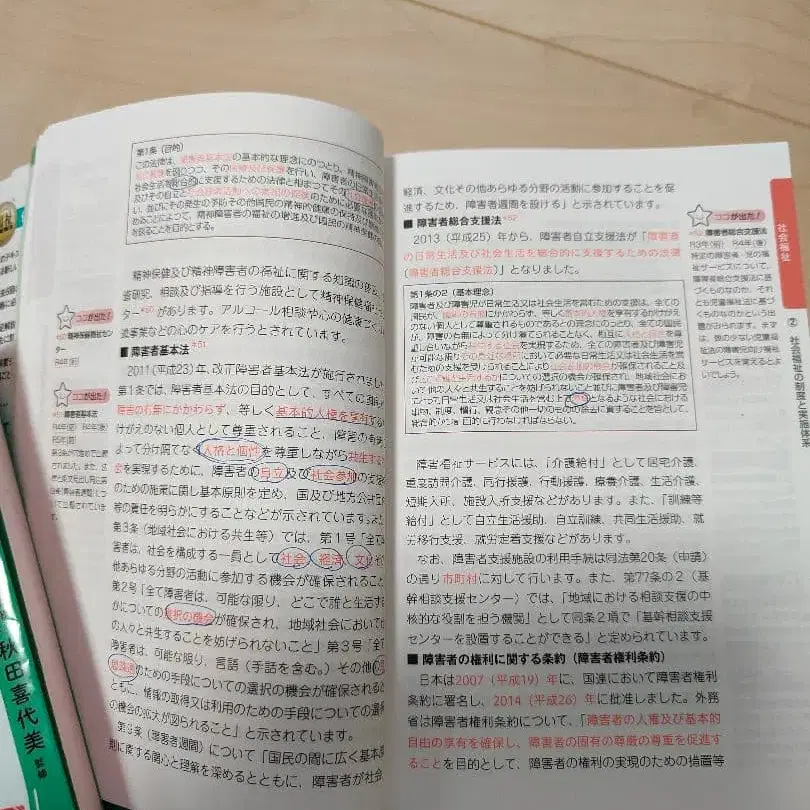 第1条（目的）
この法律は、障害者基本法の基本的な理念にのっとり、精神障
社会生活を総合的に支援するための法律と相まってその
精神保健及び精神障害者の福祉に関する知識の
研究、相談及び指導を行う施設として精神保健福
ター*50があります。アルコール相談や心の健康づく
事業などの心のケアを行うとされています。
■障害者基本法*51
2011（平成23）年、改正障害者基本法が施行されまし
第1条では、障害者基本法の目的として、すべての国
障害の有無にかかわらず、等しく基本的人権を享有する
けがえのない個人として尊重されること、障害の有無
よって分け隔てなく人格と個性を尊重しながら共生する
会を実現するために、障害者の自立及び社会参加の支援
のための施策に関し基本原則を定め、国及び地方公共団体
等の責任を明らかにすることなどが示されています。また
第3条（地域社会における共生等）では、第1号「全て
害者は、社会を構成する一員として社会、経済、文化
他あらゆる分野の活動に参加する機会が確保されること
第2号「全て障害者は、可能な限り、どこで誰と生活す
かについての選択の機会が確保され、地域社会において
の人々と共生することを妨げられないこと」第3号「全て
障害者は、可能な限り、言語（手話を含む。）その他の
思疎通のための手段についての選択の機会が確保されると
ともに、情報の取得又は利用のための手段についての選択
の機会の拡大が図られること」と示されています。
第9条（障害者週間）について「国民の間に広く基本原
則に関する関心と理解を深めるとともに、障害者が社会
ココが出た！
*50 精神保健福祉セン
ター
R4年（前）
ココが出た！
*51 障害者基本法
秋田喜代美
監修
経済、文化その他あらゆる分野の活動に参加することを促
進するため、障害者週間を設ける」と示されています。
■障害者総合支援法*52
2013（平成25）年から、障害者自立支援法が「障害者
の日常生活及び社会生活を総合的に支援するための法律
（障害者総合支援法）」となりました。
第1条の2（基本理念）
障害者及び障害児が日常生活又は社会生活を営むための支援は、全ての
国民が、障害の有無にかかわらず、等しく基本的人権を享有するかけがえ
のない個人として尊重されるものであるとの理念にのっとり、全ての国民
が、障害の有無によって分け隔てられることなく、相互に人格と個性を尊
重し合いながら共生する社会を実現するため、全ての障害者及び障害児
が可能な限りその身近な場所において必要な日常生活又は社会生活を営
むための支援を受けられることにより社会参加の機会が確保されること及
びどこで誰と生活するかについての選択の機会が確保され、地域社会にお
いて他の人々と共生することを妨げられないこと並びに障害者及び障害児
にとって日常生活又は社会生活を営む上で障壁となるような社会にお
ける事物、制度、慣行、観念その他一切のものの除去に資することを旨として、
総合的かつ計画的に行わなければならない。
障害福祉サービスには、「介護給付」として居宅介護、
重度訪問介護、同行援護、行動援護、療養介護、生活介護、
短期入所、施設入所支援などがあります。また、「訓練等
給付」として自立生活援助、自立訓練、共同生活援助、就
労移行支援、就労定着支援などがあります。
なお、障害者支援施設の利用手続は同法第20条（申請）
の通り市町村に対して行います。また、第77条の2（基
幹相談支援センター）では、「地域における相談支援の中
核的な役割を担う機関」として同条2項で「基幹相談支援
センターを設置することができる」と定められています。
■障害者の権利に関する条約（障害者権利条約）
日本は2007（平成19）年に、国連において障害者権利
条約に署名し、2014（平成26）年に批准しました。外務
省は障害者権利条約について、「障害者の人権及び基本的
自由の享有を確保し、障害者の固有の尊厳の尊重を促進す
ることを目的として、障害者の権利の実現のための措置等
ココが出た！
*52 障害者総合支援法
R3年（前） R4年（後）
特定の障害者・児の福
祉サービスについて、
障害者総合支援法に基
づくものなのか、それ
とも児童福祉法に基づ
くものなのかという出
題がみられます。ま
ずは、数の少ない児童福
祉法の障害児向け福祉
サービスを覚えるとよ
いでしょう。
社会福祉
② 社会福祉の制度と実施体系